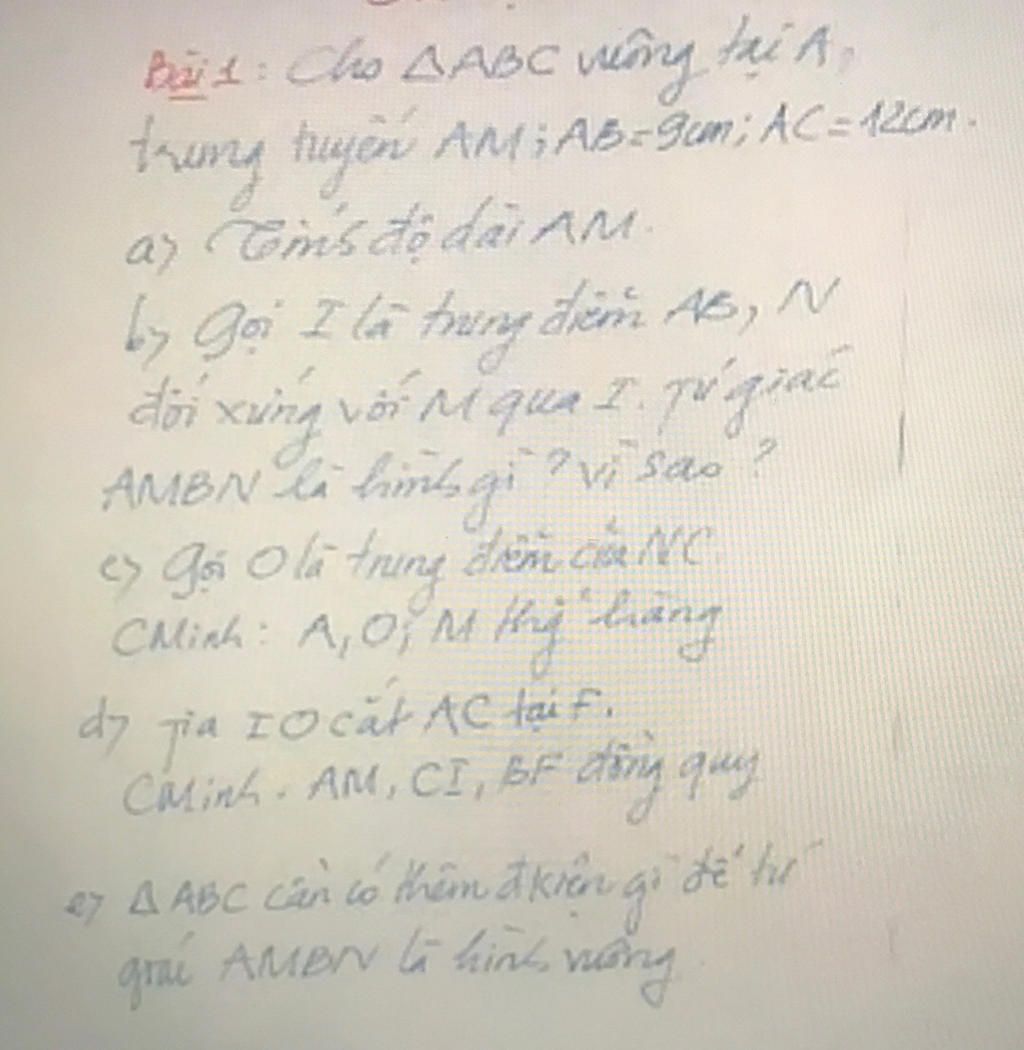 Bài 1: Cho ΔABC vuông tại A,
trung tuyến AM; AB=9cm; AC=12cm.
a) Tính độ dài AM.
b) Gọi I là trung điểm AB, N
đối xứng với M qua I. Tứ giác
AMBN là hình gì? Vì sao?
c) Gọi O là trung điểm của NC
CMinh: A, O, M thg hàng
d) Tia IO cắt AC tại F.
CMinh. AM, CI, BF đồng quy
e) ΔABC cần có thêm đkiện gì để tứ
giác AMBN là hình vuông